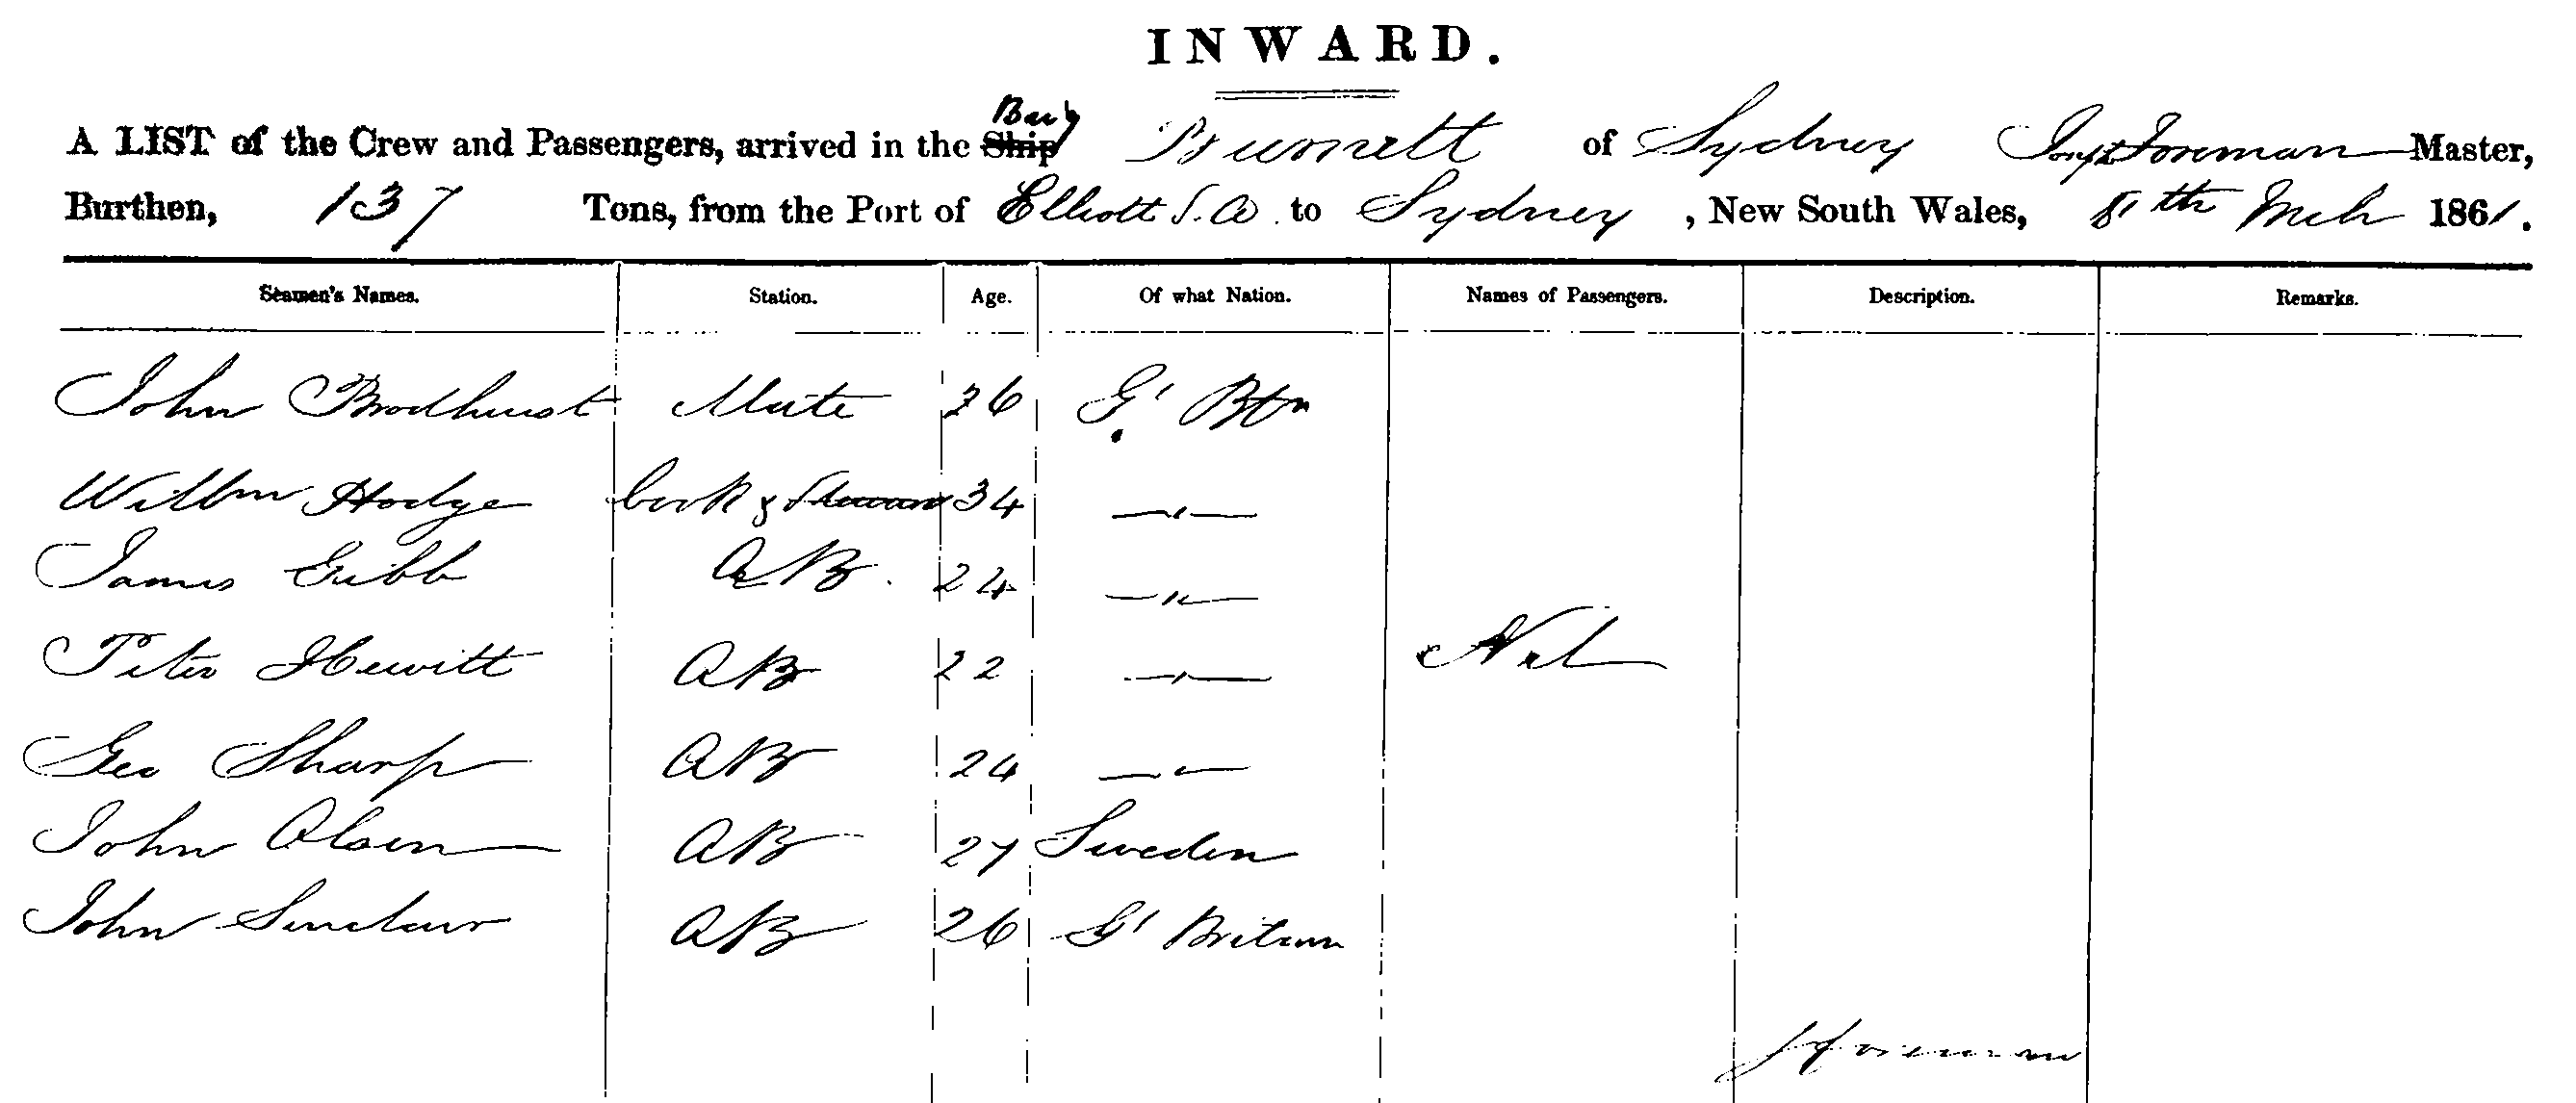 INWARD.
A LIST of the Crew and Passengers, arrived in the Ship Burnett of Sydney Foreman Master,
Burthen, 137 Tons, from the Port of Elliott S. A. to Sydney, New South Wales, 8th Mch 1861.
Seamen's Names. Station. Age. Of what Nation. Names of Passengers. Description. Remarks.
John Brodhurst Mate 36 Gt Btn
Willm Hodge Cook & Steward 34 —"—
James Gibb AB. 24 —"—
Peter Hewitt AB 22 —"— Nil
Geo Sharp AB 24 —"—
John Olsen AB 27 Sweden
John Sinclair AB 26 Gt Britain
J Foreman